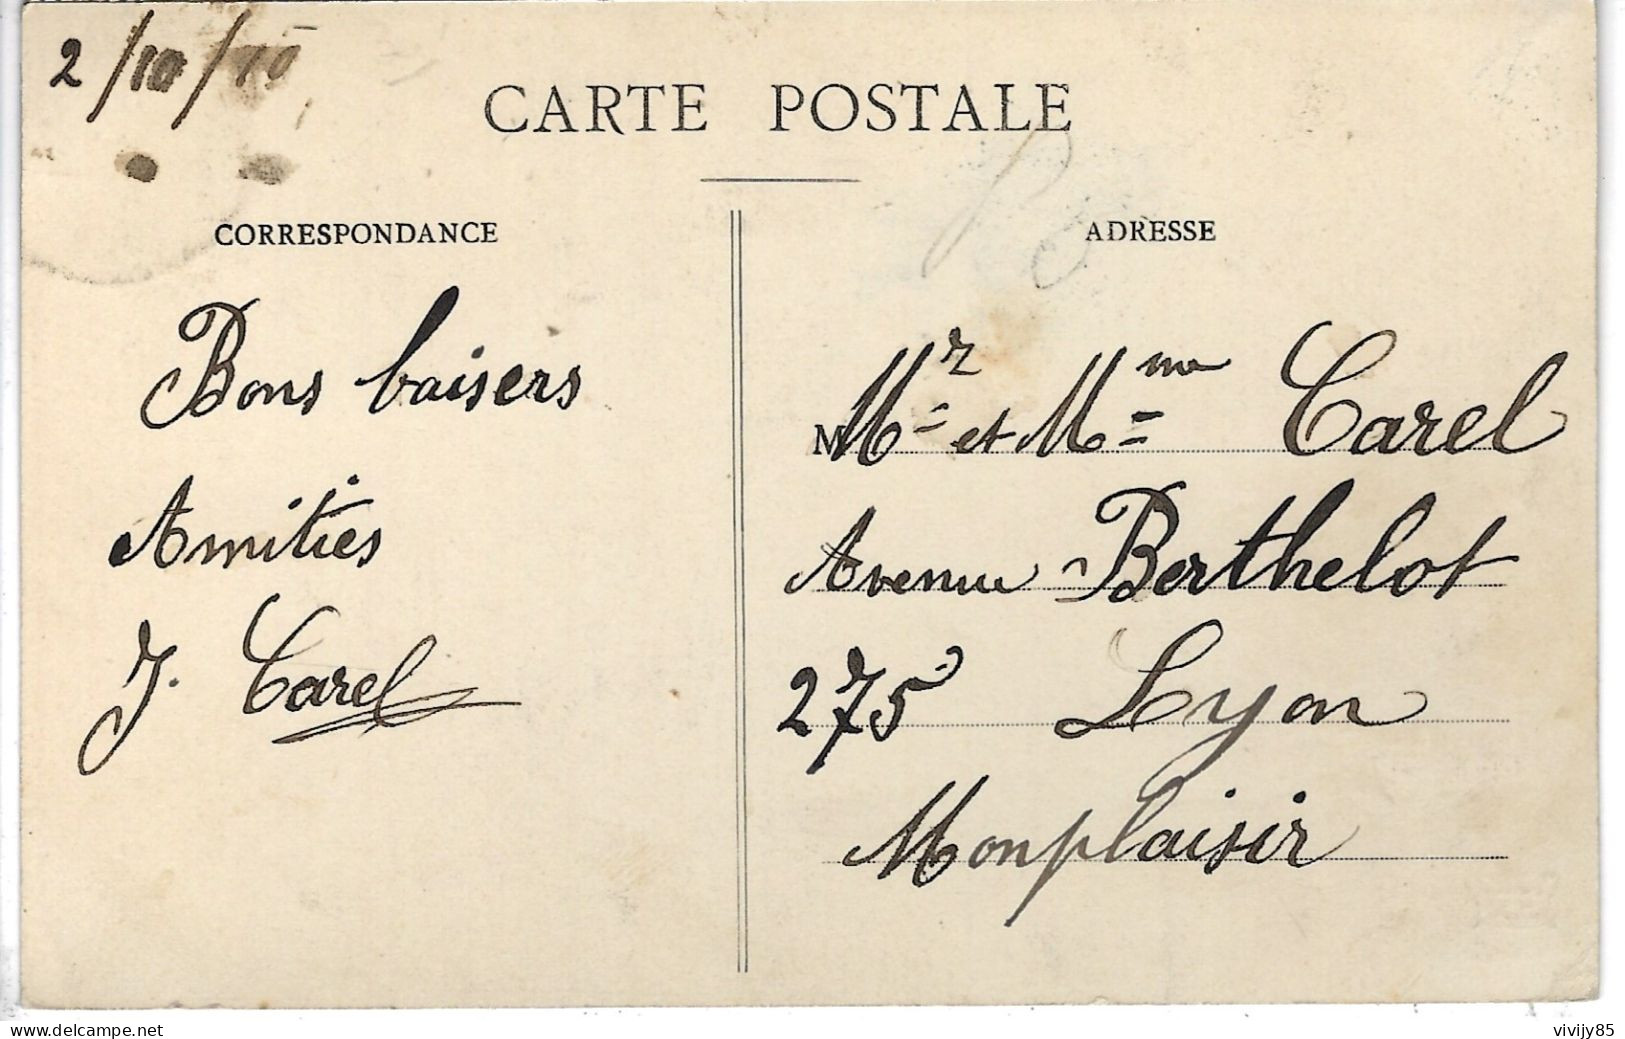 2/10/10
CARTE POSTALE
CORRESPONDANCE
Bons baisers
Amitiés
J. Carel
ADRESSE
M Mr et Mme Carel
Avenue Berthelot
275 Lyon
Monplaisir
www.delcampe.net
vivijy85